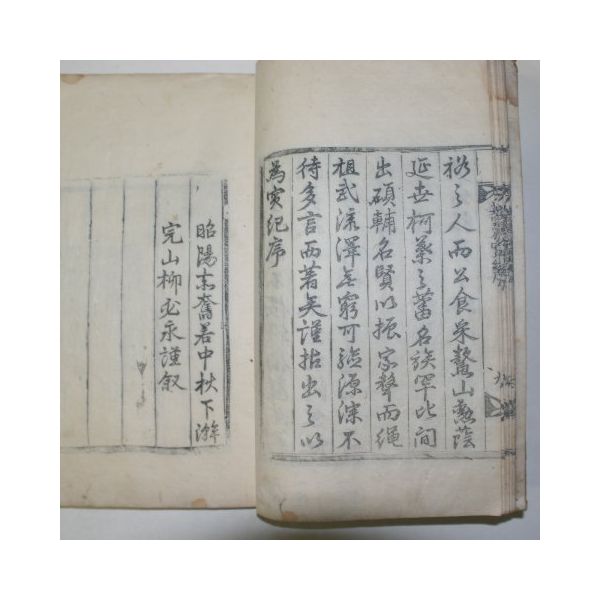 裕之人而公食采鰲山蔭
延世柯葉之蕃名族罕比間
出碩輔名賢以振家聲而繩
祖武深澤無窮可驗源深不
待多言而著矣謹拈出之以
為寅紀序
昭陽赤奮若中秋下澣
完山柳永謹叙